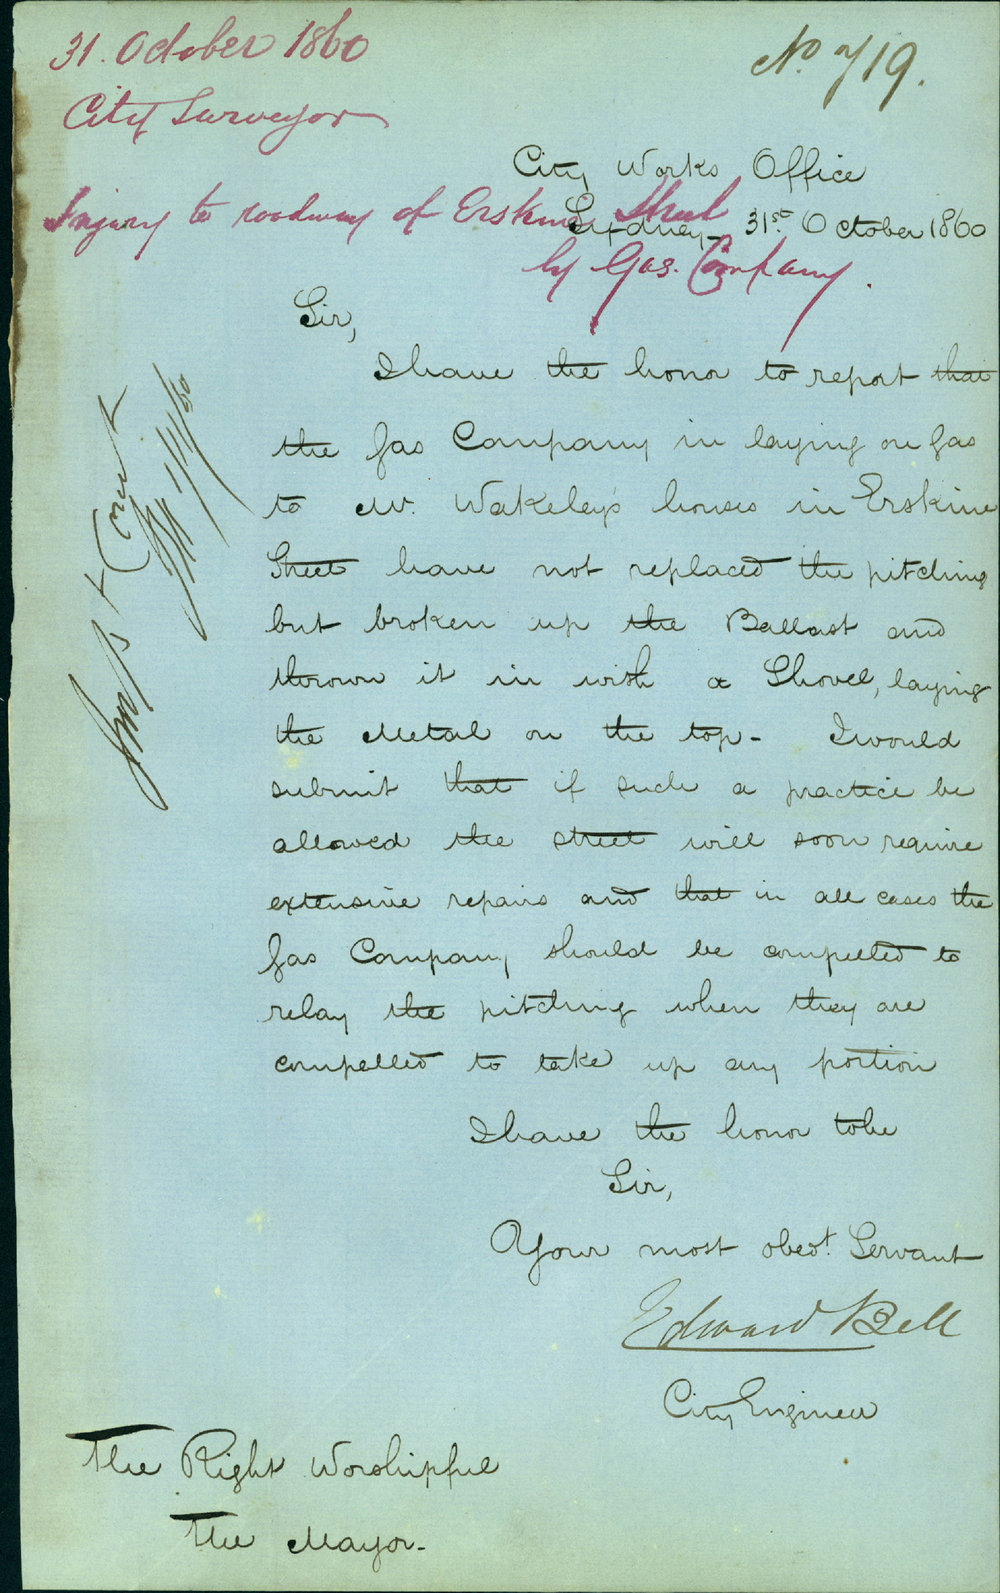 31. October 1860
No. 719.
City Surveyor
City Works Office
Injury to roadway of Erskine Street
Sydney 31st October 1860
by Gas. Company.
Sir,
I have the honor to report that
the Gas Company in laying on Gas
to Mr. Wakeley's houses in Erskine
Street have not replaced the pitching
but broken up the Ballast and
thrown it in with a Shovel, laying
the Metal on the top - I would
submit that if such a practice be
allowed the street will soon require
extensive repairs and that in all cases the
Gas Company should be compelled to
relay the pitching when they are
compelled to take up any portion
I have the honor to be
Sir,
Your most obedt. Servant
Edward Bell
City Engineer
The Right Worshipful
The Mayor -